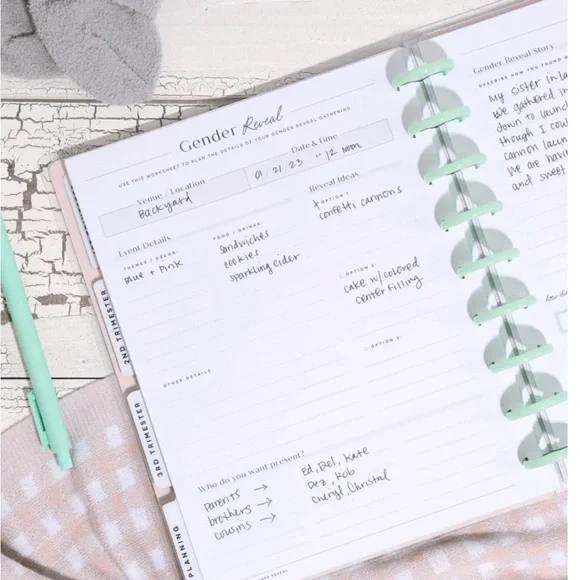 Gender Reveal
USE THIS WORKSHEET TO PLAN THE DETAILS OF YOUR GENDER REVEAL GATHERING
Venue / Location
Backyard
Date & Time
01/21/23 12 noon
Event Details
THEMES / DECOR:
Blue + Pink
FOOD / DRINKS:
sandwiches
cookies
sparkling cider
Reveal Ideas
OPTION 1:
confetti cannons
OPTION 2:
cake w/ colored
center filling
OPTION 3:
OTHER DETAILS
Who do you want present?
parents → Ed, Bel, Kate
brothers → Dez, Rob
cousins → Cheryl, Christal
2ND TRIMESTER
3RD TRIMESTER
PLANNING
Gender Reveal Story
DESCRIBE HOW YOU FOUND
My sister in la
we gathered in
down to launch
though I cou
cannon laun
we are havin
and sweet